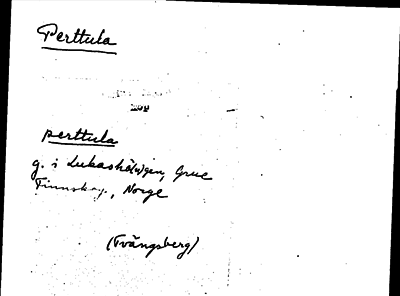 Perttula
perttula
g. i Lukashö(u)gen, Grue
Finnskog., Norge
(Tvängsberg)